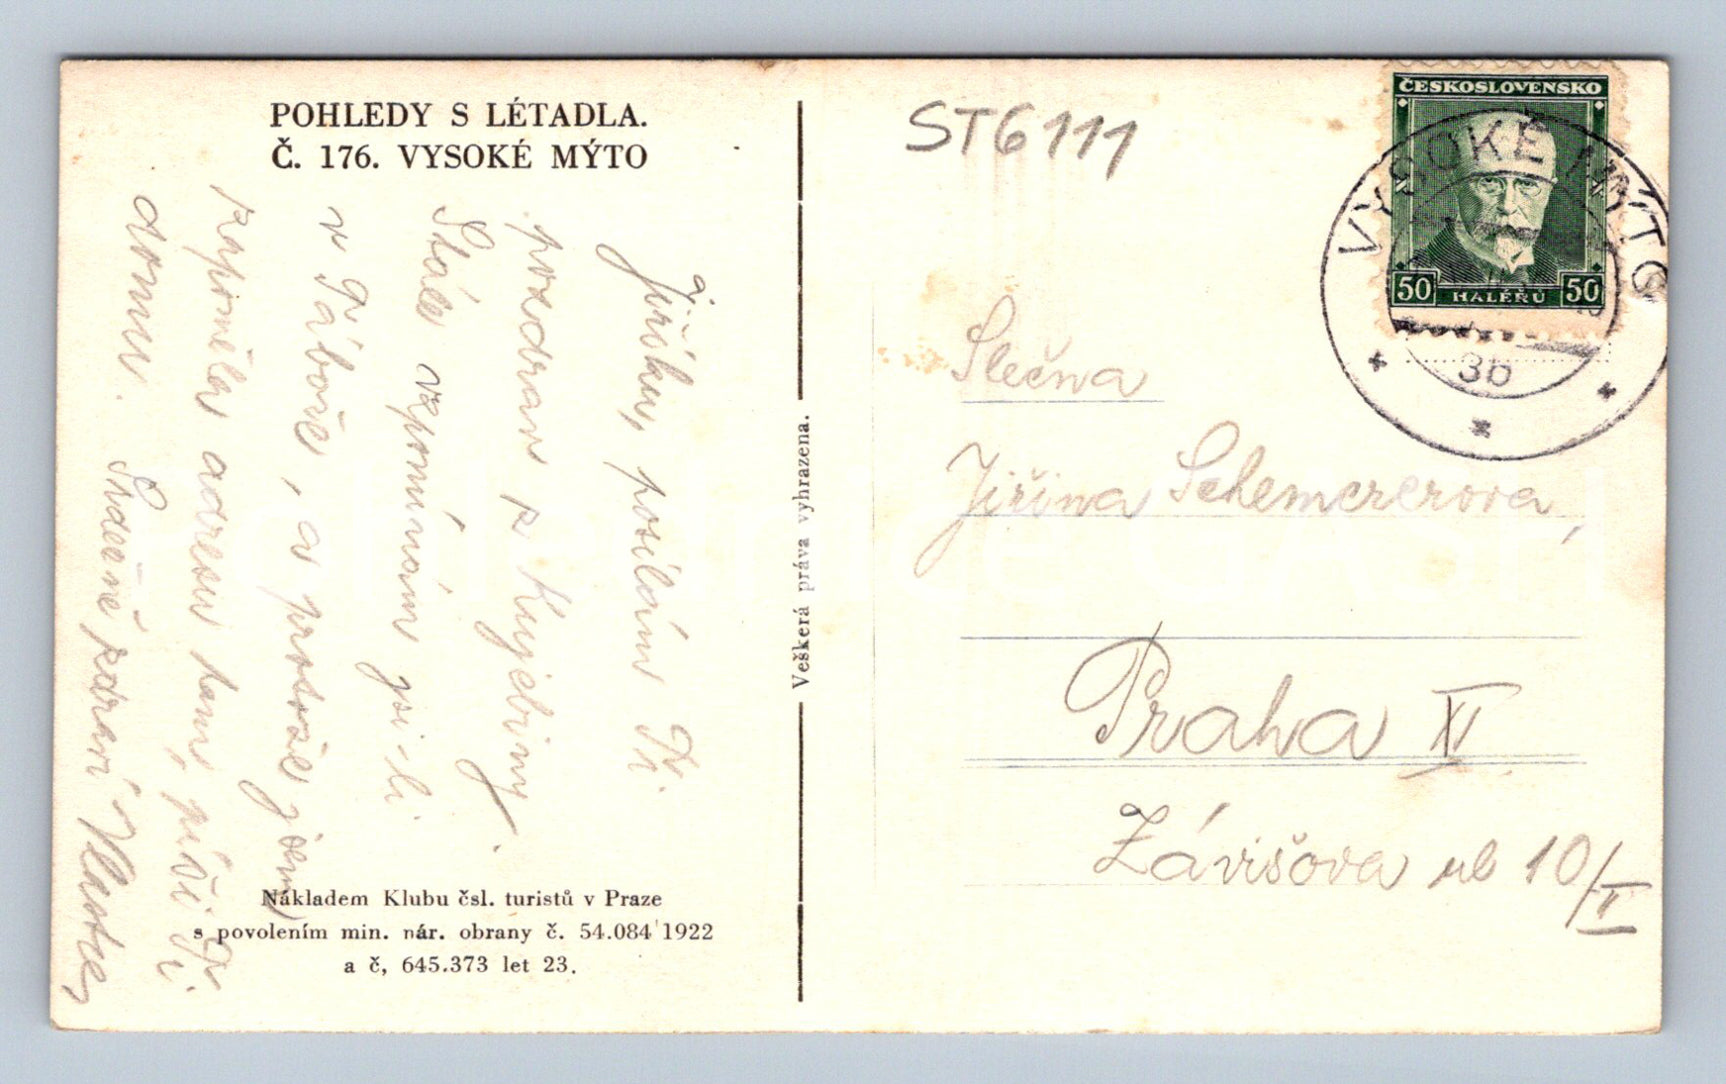 POHLEDY S LÉTADLA.
Č. 176. VYSOKÉ MÝTO
Jiřko, posílám Ti
pozdrav z Kujebiny.
Stále vzpomínám jsi-li
v Táboře, a protože jsem
zapomněla adresu tam, píši Ti
domu. Srdečně zdraví Vlasta
Nákladem Klubu čsl. turistů v Praze
s povolením min. nár. obrany č. 54.084 1922
a č, 645.373 let 23.
Veškerá práva vyhrazena.
ST6111
ČESKOSLOVENSKO
50 HALÉŘŮ 50
VYSOKÉ MÝTO
3b
Slečna
Jiřina Schemererova,
Praha XI
Závišova ul 10/II